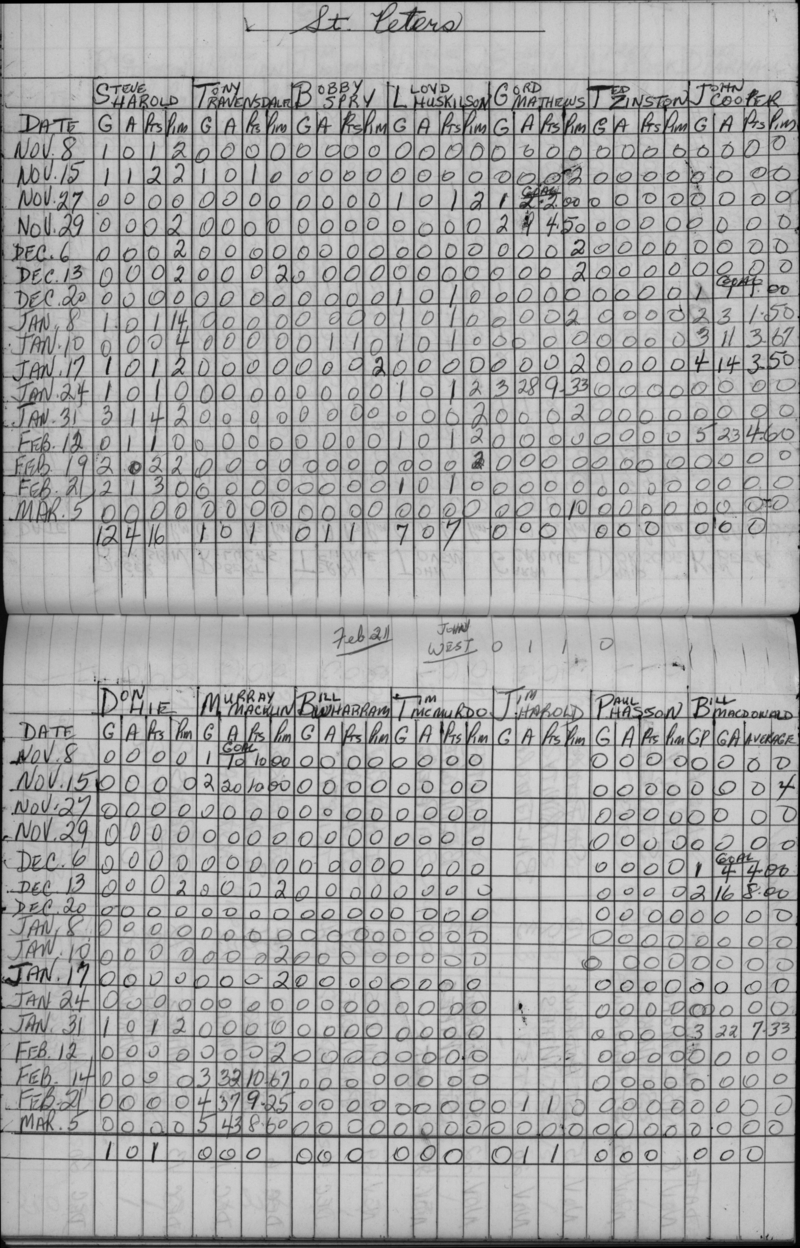 St. Peters
STEVE HAROLD TONY RAVENSDALE BOBBY SPRY LLOYD HUSKILSON GORD MATHEWS TED ZINSTON JOHN COOPER
DATE G A Pts Pim G A Pts Pim G A Pts Pim G A Pts Pim G A Pts Pim G A Pts Pim G A Pts Pim
NOV. 8 1 0 1 2 0 0 0 0 0 0 0 0 0 0 0 0 0 0 0 0 0 0 0 0 0 0 0 0
NOV. 15 1 1 2 2 1 0 1 0 0 0 0 0 0 0 0 0 0 0 0 2 0 0 0 0 0 0 0 0
NOV. 27 0 0 0 0 0 0 0 0 0 0 0 0 1 0 1 2 1 GOAL 2 2.00 0 0 0 0 0 0 0 0
NOV. 29 0 0 0 2 0 0 0 0 0 0 0 0 0 0 0 0 2 9 4.50 0 0 0 0 0 0 0 0
DEC. 6 0 0 0 2 0 0 0 0 0 0 0 0 0 0 0 0 0 0 0 2 0 0 0 0 0 0 0 0
DEC. 13 0 0 0 2 0 0 0 2 0 0 0 0 0 0 0 0 0 0 0 2 0 0 0 0 0 0 0 0
DEC. 20 0 0 0 0 0 0 0 0 0 0 0 0 1 0 1 0 0 0 0 0 0 0 0 0 1 GOAL 4.00
JAN. 8 1 0 1 14 0 0 0 0 0 0 0 0 1 0 1 0 0 0 0 2 0 0 0 0 2 3 1.50
JAN. 10 0 0 0 4 0 0 0 0 0 1 1 0 1 0 1 0 0 0 0 0 0 0 0 0 3 11 3.67
JAN. 17 1 0 1 2 0 0 0 0 0 0 0 2 0 0 0 0 0 0 0 2 0 0 0 0 4 14 3.50
JAN. 24 1 0 1 0 0 0 0 0 0 0 0 0 1 0 1 2 3 28 9.33 0 0 0 0 0 0 0 0
JAN. 31 3 1 4 2 0 0 0 0 0 0 0 0 0 0 0 2 0 0 0 2 0 0 0 0 0 0 0 0
FEB. 12 0 1 1 0 0 0 0 0 0 0 0 0 1 0 1 2 0 0 0 0 0 0 0 0 5 23 4.60
FEB 19 2 0 2 2 0 0 0 0 0 0 0 0 0 0 0 2 0 0 0 0 0 0 0 0 0 0 0 0
FEB. 21 2 1 3 0 0 0 0 0 0 0 0 0 1 0 1 0 0 0 0 0 0 0 0 0 0 0 0 0
MAR. 5 0 0 0 0 0 0 0 0 0 0 0 0 0 0 0 0 0 0 0 10 0 0 0 0 0 0 0 0
12 4 16 1 0 1 0 1 1 7 0 7 0 0 0 0 0 0 0 0 0
Feb 21 JOHN WEST 0 1 1 0
DON HIE MURRAY MACKLIN BILL BWHARRAM TIM MCMURDO JIM HAROLD PAUL HASSON BILL MACDONALD
DATE G A Pts Pim G A Pts Pim G A Pts Pim G A Pts Pim G A Pts Pim G A Pts Pim GP GA AVERAGE
NOV. 8 0 0 0 0 1 GOAL 10 10.00 0 0 0 0 0 0 0 0 0 0 0 0 0 0 0 0
NOV. 15 0 0 0 0 2 20 10.00 0 0 0 0 0 0 0 0 0 0 0 0 0 0 0 4
NOV. 27 0 0 0 0 0 0 0 0 0 0 0 0 0 0 0 0 0 0 0 0 0 0 0 0
NOV. 29 0 0 0 0 0 0 0 0 0 0 0 0 0 0 0 0 0 0 0 0 0 0 0 0
DEC. 6 0 0 0 0 0 0 0 0 0 0 0 0 0 0 0 0 0 0 0 0 1 GOAL 4 4.00
DEC 13 0 0 0 2 0 0 0 2 0 0 0 0 0 0 0 0 0 0 0 0 2 16 8.00
DEC. 20 0 0 0 0 0 0 0 0 0 0 0 0 0 0 0 0 0 0 0 0 0 0 0 0
JAN. 8 0 0 0 0 0 0 0 0 0 0 0 0 0 0 0 0 0 0 0 0 0 0 0 0
JAN. 10 0 0 0 0 0 0 0 2 0 0 0 0 0 0 0 0 0 0 0 0 0 0 0 0
JAN. 17 0 0 0 0 0 0 0 2 0 0 0 0 0 0 0 0 0 0 0 0 0 0 0 0
JAN 24 0 0 0 0 0 0 0 0 0 0 0 0 0 0 0 0 0 0 0 0 0 0 0 0
JAN. 31 1 0 1 2 0 0 0 0 0 0 0 0 0 0 0 0 0 0 0 0 3 22 7.33
FEB. 12 0 0 0 0 0 0 0 2 0 0 0 0 0 0 0 0 0 0 0 0 0 0 0 0
FEB. 14 0 0 0 0 3 32 10.67 0 0 0 0 0 0 0 0 0 0 0 0 0 0 0 0
FEB. 21 0 0 0 0 4 37 9.25 0 0 0 0 0 0 0 0 0 1 1 0 0 0 0 0 0 0 0 0
MAR. 5 0 0 0 0 5 43 8.60 0 0 0 0 0 0 0 0 0 0 0 0 0 0 0 0 0 0 0 0
1 0 1 0 0 0 0 0 0 0 0 0 0 1 1 0 0 0 0 0 0